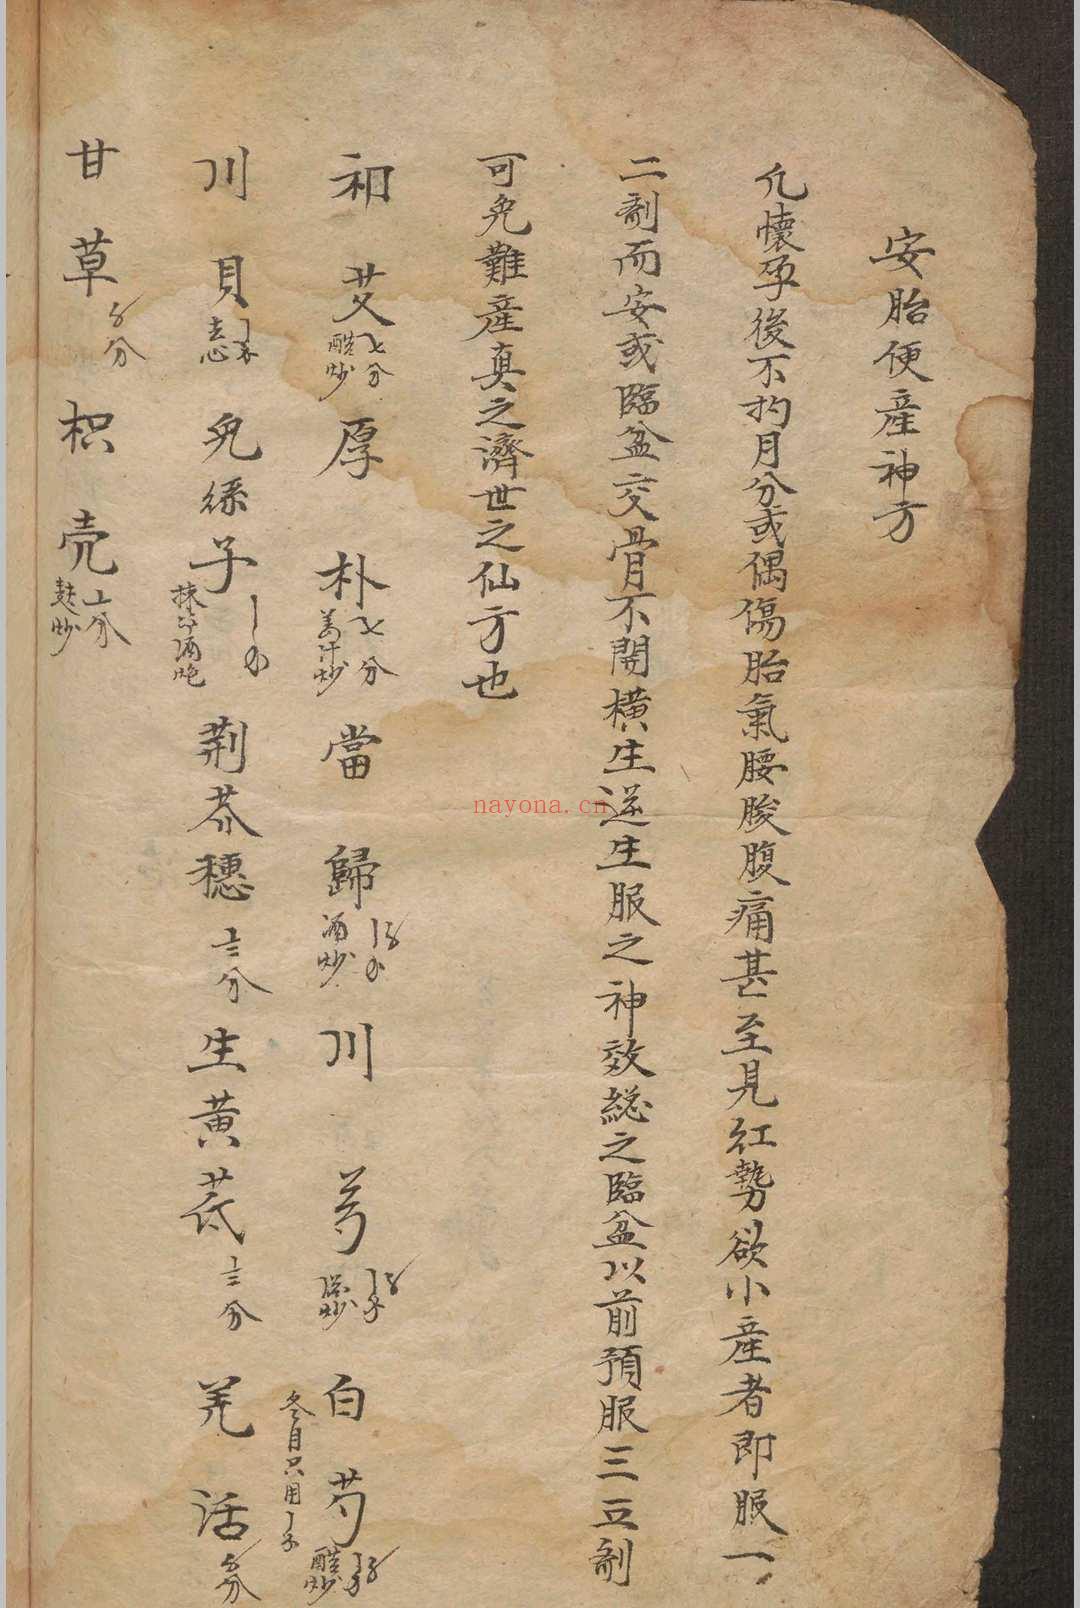 安胎便產神方
凡懷孕後不抅月分或偶傷胎氣腰胺腹痛甚至見紅勢欲小產者即服一
二劑而安或臨盆交骨不開橫生逆生服之神效總之臨盆以前預服三五劑
可免難產真之濟世之仙方也
祁艾七分醋炒 厚朴七分姜汁炒 當歸酒炒 川芎 白芍醋炒 冬月只用
川貝去心 兔絲子酒炮 荆芥穗 分 生黄芪 分 羌活 分
甘草 分 枳壳 分麸炒
nayona.cn